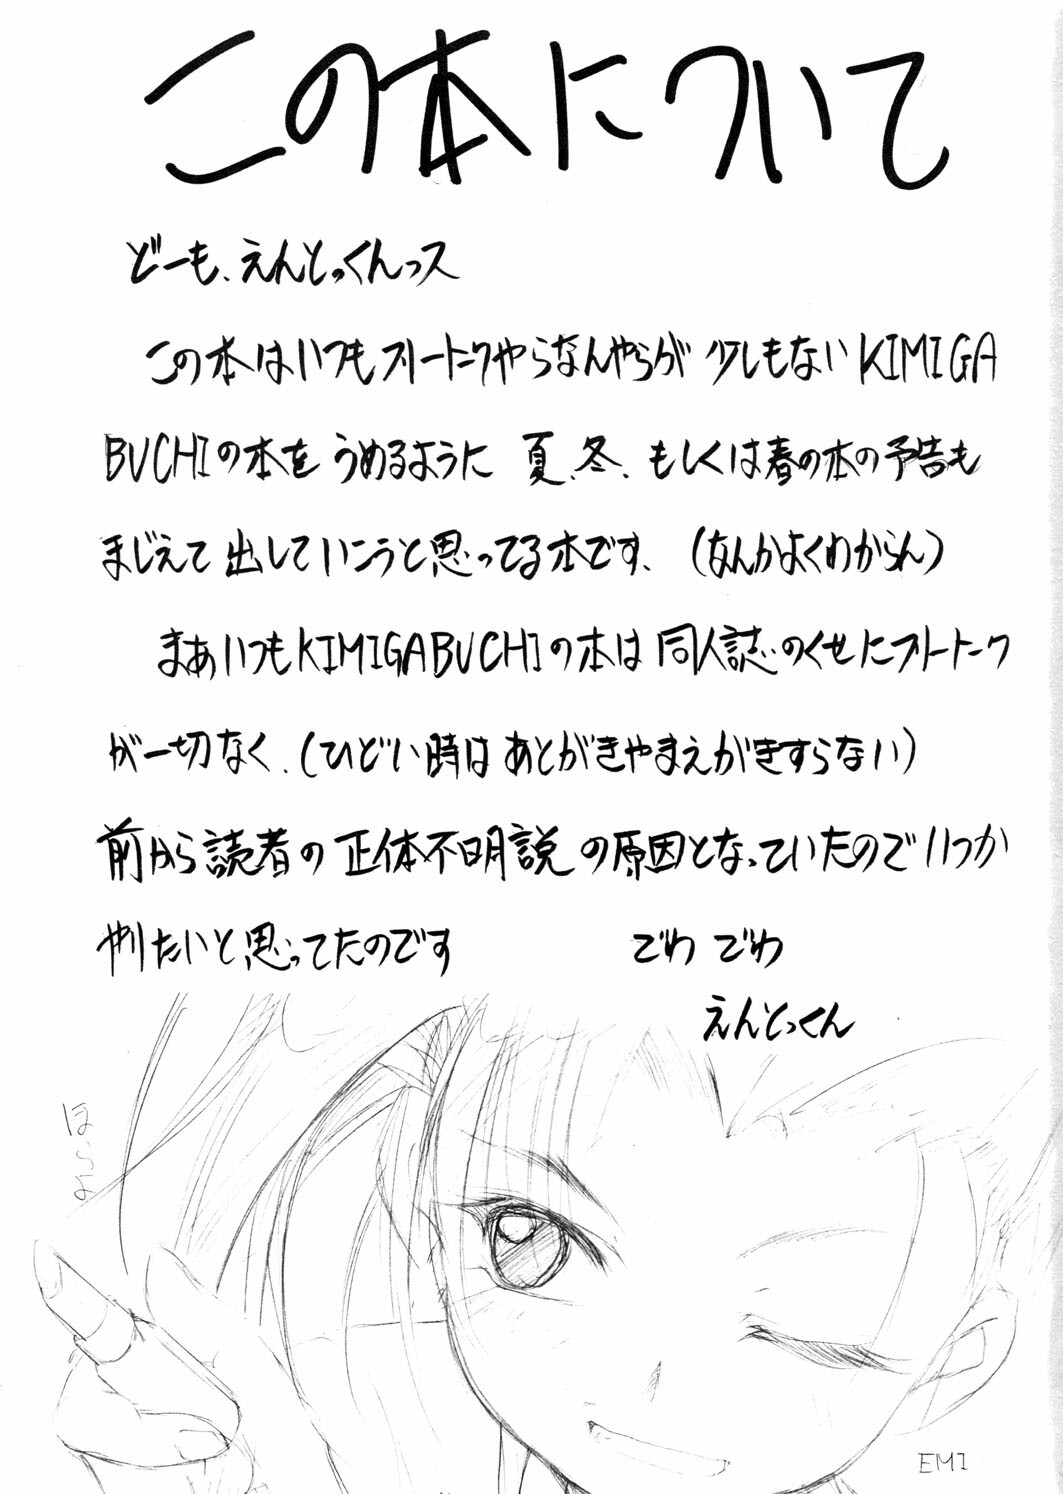 この本について
どーも、えんとっくんっス
この本はいつもフリートークやらなんやらが少しもないKIMIGA
BUCHIの本をうめるように 夏、冬、もしくは春の本の予告も
まじえて出していこうと思ってる本です、(なんかよくわからん)
まあいつもKIMIGABUCHIの本は同人誌のくせにフリートーク
が一切なく、(ひどい時はあとがきやまえがきすらない)
前から読者の正体不明説の原因となっていたのでいつか
やりたいと思ってたのです
でわ でわ
えんとっくん
EMI